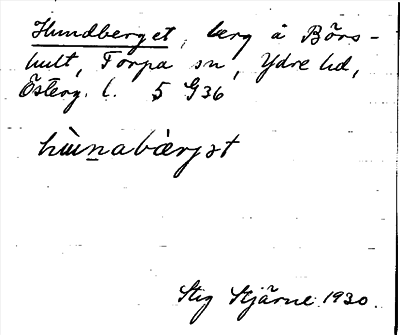 Hundberget, berg å Börs-
hult, Torpa sn, Ydre hd,
Österg. l. 5 G36
hùnabærjət
Stig Stjärne 1930.